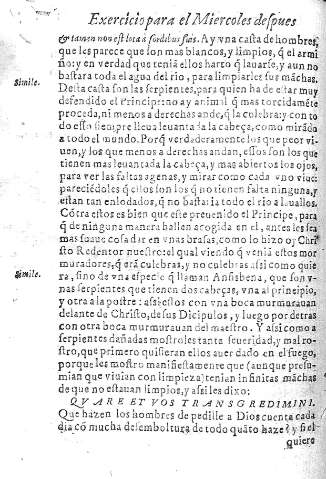 Exercicio para el Miercoles despues
& tamen non est lota à sordibus suis. Ay vna casta de hombres,
que les parece que son mas blancos, y limpios, q̃ el armi
ño: y en verdad que tenia ellos harto q̃ lauarse, y aun no
bastara toda el agua del rio, para limpiarles sus mãchas.
Simile.
Desta casta son las serpientes, para quien ha de estar muy
defendido el Principe: no ay animal q̃ mas torcidamẽte
proceda, ni menos a derechas ande, q̃ la culebra: y con to
do esso siempre lleua leuantada la cabeça, como mirãdo
a todo el mundo. Porq̃ verdaderamente los que peor vi-
uen, y los que menos a derechas andan, essos son los que
tienen mas leuantada la cabeça, y mas abiertos los ojos,
para ver las faltas agenas, y mirar como cada vno viue:
pareciẽdoles q̃ ellos son los q̃ no tienen falta ninguna, y
estan tan enlodados, q̃ no bastaria todo el rio a lauallos.
Cõtra estos es bien que este preuenido el Principe, para
q̃ de ninguna manera hallen acogida en el, antes les sea
mas suaue cosa dar en vnas brasas, como lo hizo o; Chri
sto Redentor nuestro: el qual viendo q̃ venia estos mor
muradores, q̃ erã culebras, y no culebras assi como quie
Simile.
ra, sino de vna especie q̃ llaman Anfisbena, que son v-
nas serpientes que tienen dos cabeças, vna al principio,
y otra a la postre: assi estos con vna boca murmurauan
delante de Christo, de sus Dicipulos, y luego por detras
con otra boca murmurauan del maestro. Y assi como a
serpientes dañadas mostroles tanta seueridad, y mal ro-
stro, que primero quisieran ellos auer dado en el fuego,
porque les mostro manifiestamente que (aunque presu-
mian que viuian con limpieza) tenian infinitas mãchas
de que no estauan limpios, y assi les dixo:
QVARE ET VOS TRANSGREDIMINI.
Que hazen los hombres de pedille a Dios cuenta cada
dia cõ mucha desemboltura de todo quãto haze? y si el
quiere